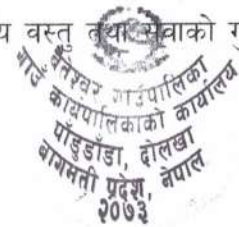 य वस्तु तथा सेवाको ग
बैतेश्वर गाउँपालिका
गाउँ कार्यपालिकाको कार्यालय
पाँडुडाँडा, दोलखा
बागमती प्रदेश, नेपाल
२०७३